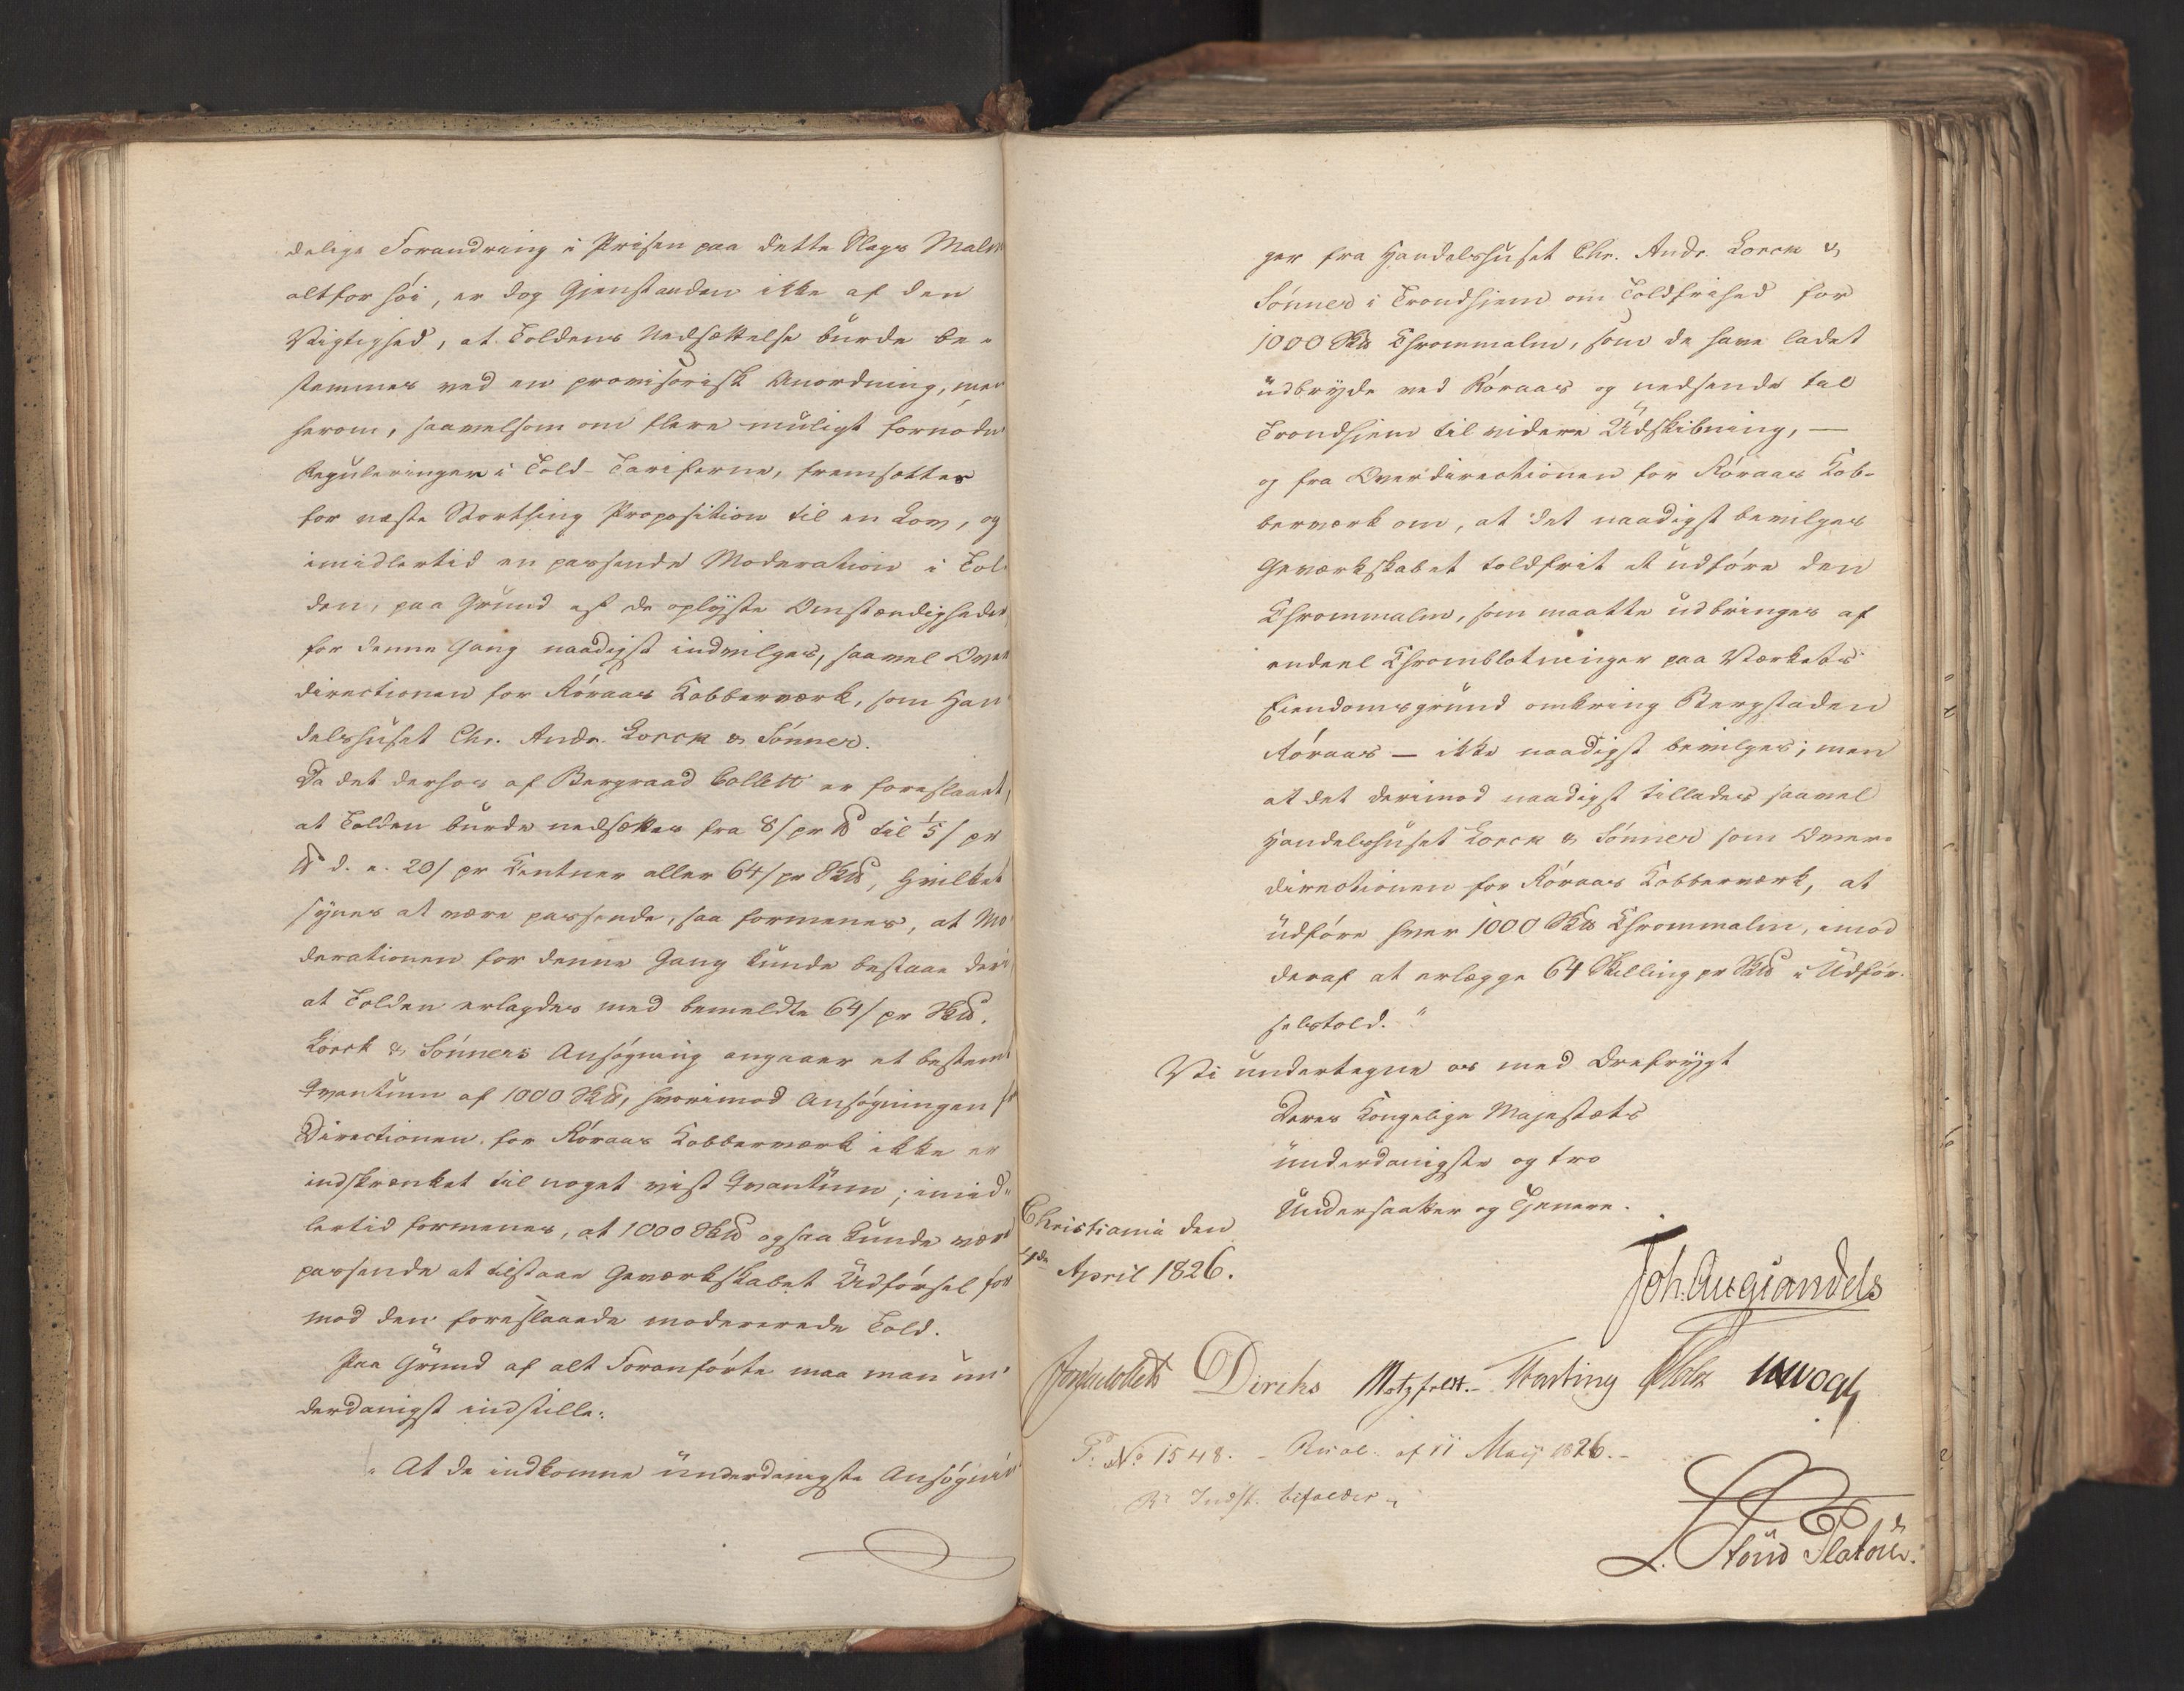 delige Forandring i Prisen paa dette Slags Malm
altfor høi, er dog Gjenstanden ikke af den
Vigtighed, at Toldens Nedsættelse burde be-
stemmes ved en provisorisk Anordning, men
herom, saavelsom om flere muligt fornødne
Reguleringer i Told-Tarifferne, fremsættes
for næste Storthing Proposition til en Lov, og
imidlertid en passende Moderation i Tol-
den, paa Grund af de oplyste Omstændigheder,
for denne Gang naadigst indvilges, saavel Over
directionen for Røraas Kobberværk, som Han
delshuset Chr. Andr. Lorck & Sønner.
Da det derhos af Bergraad Collett er foreslaaet,
at Tolden burde nedsættes fra 8/ pr ℔ til 1/5/ pr
℔ d. e. 20/ pr Centner eller 64/ pr Sk℔, hvilket
synes at være passende, saa formenes, at Mo
derationen for denne Gang kunde bestaae deri,
at Tolden erlagdes med bemeldte 64/ pr Sk℔.
Lorck & Sønners Ansøgning angaaer et bestemt
Qvantum af 1000 Sk℔, hvorimod Ansøgningen fr
Directionen for Røraas Kobberværk ikke er
indskrænket til noget vist Qvantum; imid-
lertid formenes, at 1000 Sk℔ ogsaa kunde være
passende at tilstaae Geværkskabet Udførsel for
mod den foreslaaede modererede Told.
Paa Grund af alt Foranførte maa man un-
derdanigst indstille:
"At de indkomne underdanigste Ansøgnin
ger fra Handelshuset Chr. Andr. Lorck &
Sønner i Trondhjem om Toldfrihed for
1000 Sk℔ Chrommalm, som de have ladet
udbryde ved Røraas og nedsende til
Trondhjem til videre Udskibning, —
og fra Overdirectionen for Røraas Kob-
berværk om, at det naadigst bevilges
Geværkskabet toldfrit at udføre den
Chrommalm, som maatte udbringes af
endeel Chromblotninger paa Værkets
Eiendomsgrund omkring Bergstaden
Røraas — ikke naadigst bevilges; men
at det derimod naadigst tillades saavel
Handelshuset Lorck & Sønner som Over-
directionen for Røraas Kobberværk, at
udføre hver 1000 Sk℔ Chrommalm, imod
deraf at erlægge 64 Skilling pr Sk℔ i Udfør-
selstold."
Vi undertegne os med Ærefrygt
Deres Kongelige Majestæts
underdanigste og tro
Undersaatter og Tjenere.
Christiania den
4de April 1826.
Joh. Aug Sandels
Jonas Collett Diriks Motzfeldt. Fasting Holst Vogt
P: No 1548. - Resol. af 11 Maij 1826. -
Rs Indst. bifaldes
L. Stoud Platou.